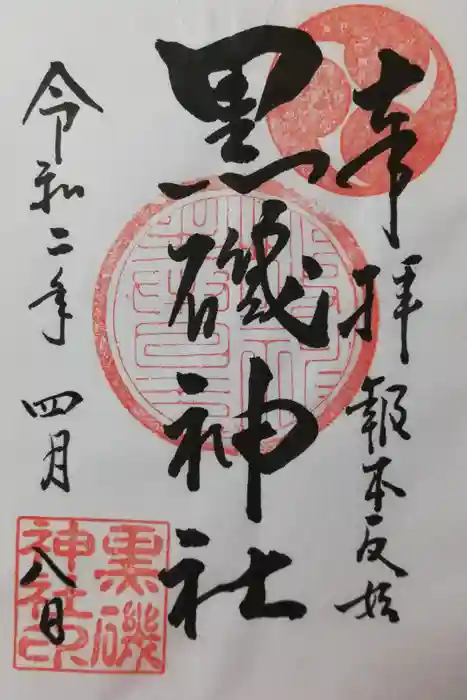 奉拝
報本反始
黒磯神社
令和二年 四月
八日
黒磯
神社印